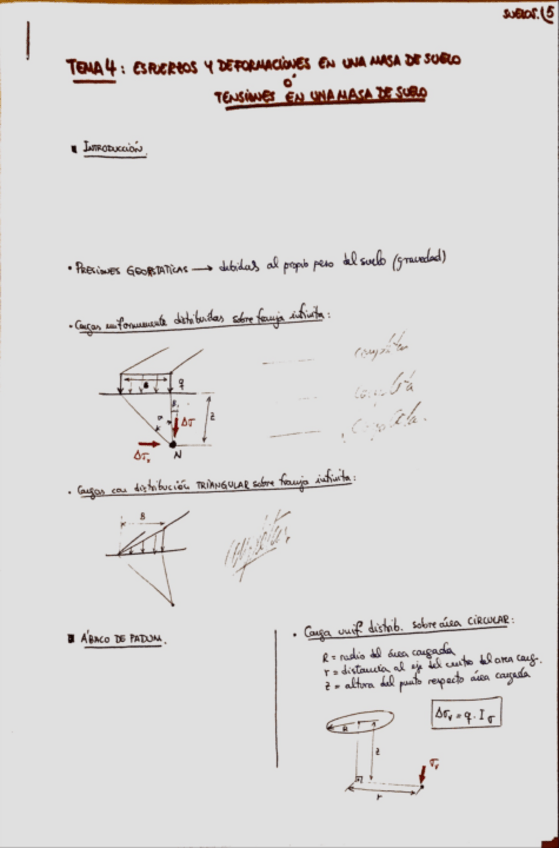 SUELOS. (5
TEMA 4: ESFUERZOS Y DEFORMACIONES EN UNA MASA DE SUELO
O'
TENSIONES EN UNA MASA DE SUELO
INTRODUCCIÓN.
• PRESIONES GEOSTATICAS → debidas al propio peso del suelo (gravedad)
• Cargas uniformemente distribuidas sobre franja infinita:
completa
completa
completa.
B q
α z
Δσ
Δσx N
• Cargas con distribución TRIANGULAR sobre franja infinita:
B
ÁBACO DE PADUM.
• Carga unif. distrib. sobre área CIRCULAR:
R = radio del área cargada
r = distancia al eje del centro del area carg.
z = altura del punto respecto área cargada
Δσv = q · Iσ
R
z
σv
r